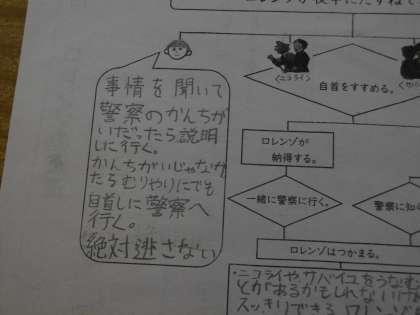 事情を聞いて
警察のかんちが
いだったら説明
しに行く。
かんちがいじゃなかっ
たらむりやりにでも
自首しに警察へ
行く。
絶対逃さない
<ニコライ>
自首をすすめる。
ロレンゾが
納得する。
一緒に警察に行く。
警察に知
ロレンゾはつかまる。
・ニコライやサバイユをうなむ
とがあるかもしれない
スッキリできる ロレンゾ